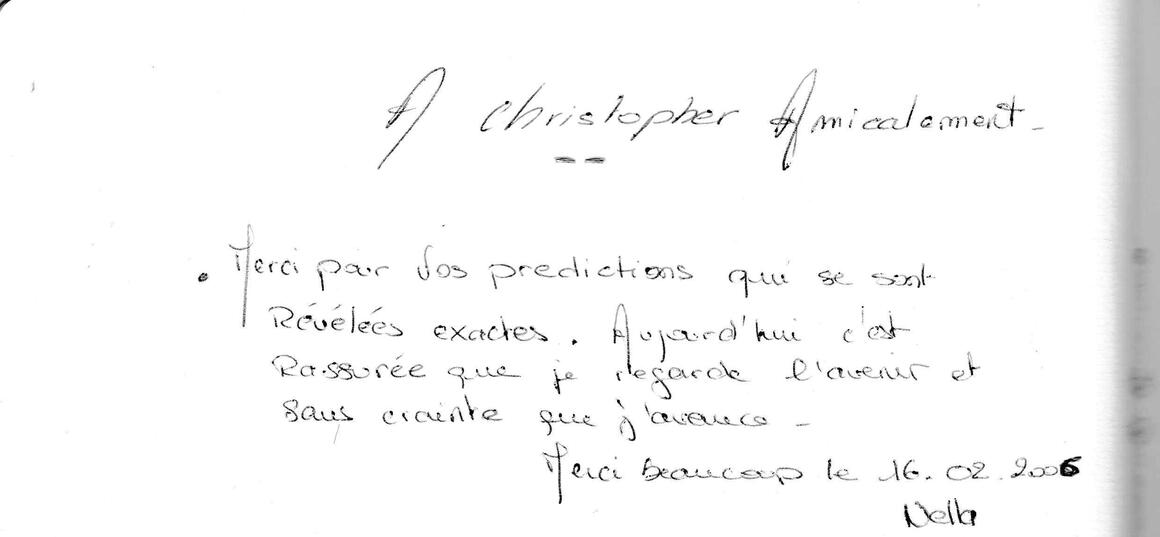 A Christopher Amicalement_
. Merci pour vos predictions qui se sont
Révélées exactes. Aujourd'hui c'est
Rassurée que je regarde l'avenir et
sans crainte que j'avance _
Merci beaucoup le 16.02.2006
Nella